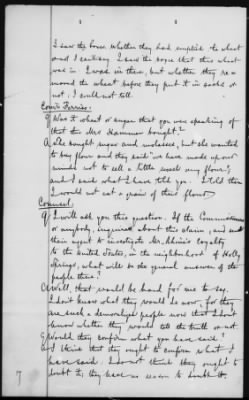 I saw the horse whether they had emptied the wheat
and I can't say. I saw the room that this wheat
was in. I was in there, but whether they re=
moved the wheat before they put it in sacks or
not, I could not tell.
Com'r Ferriss.
Q Was it wheat or sugar that you were speaking of
that this Mrs Hammer bought?
A She bought sugar and molasses, but she wanted
to buy flour and they said "we have made up our
minds not to sell a little rebel very flour",
and I said what I have told you. I told them
I would not eat a grain of their flour.
Counsel.
Q I will ask you this question. If the Commissioners
or anybody, inquire about this claim, and send
their agent to investigate Mr. loyalty
to the United States, in the neighborhood of Holly
Springs, what will be the general answer of the
people there?
A Well, that would be hard for me to say.
I don't know what they would do now, for they
are such a demoralized people now that I don't
know whether they would tell the truth or not.
Q Would they confirm what you have said?
A I think that they ought to confirm what I
have said. I don't think they ought to
doubt it, they have no reason to doubt it.
7